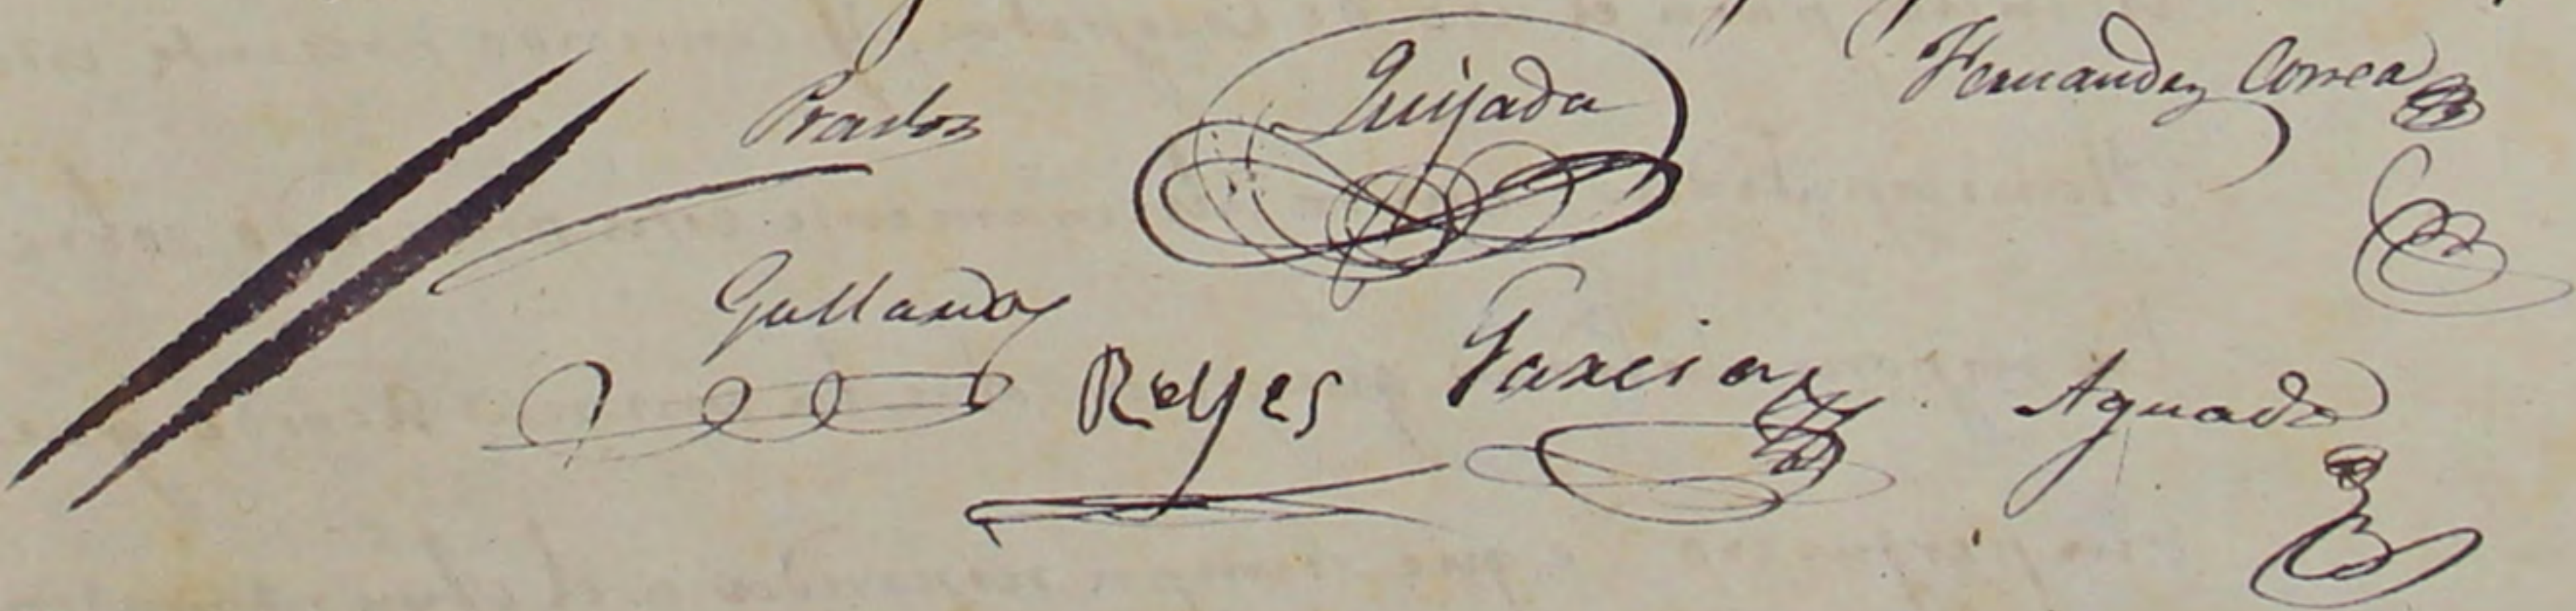 Prados Quijada Fernandez Correa
Gallardo Reyes Garcia Aguado